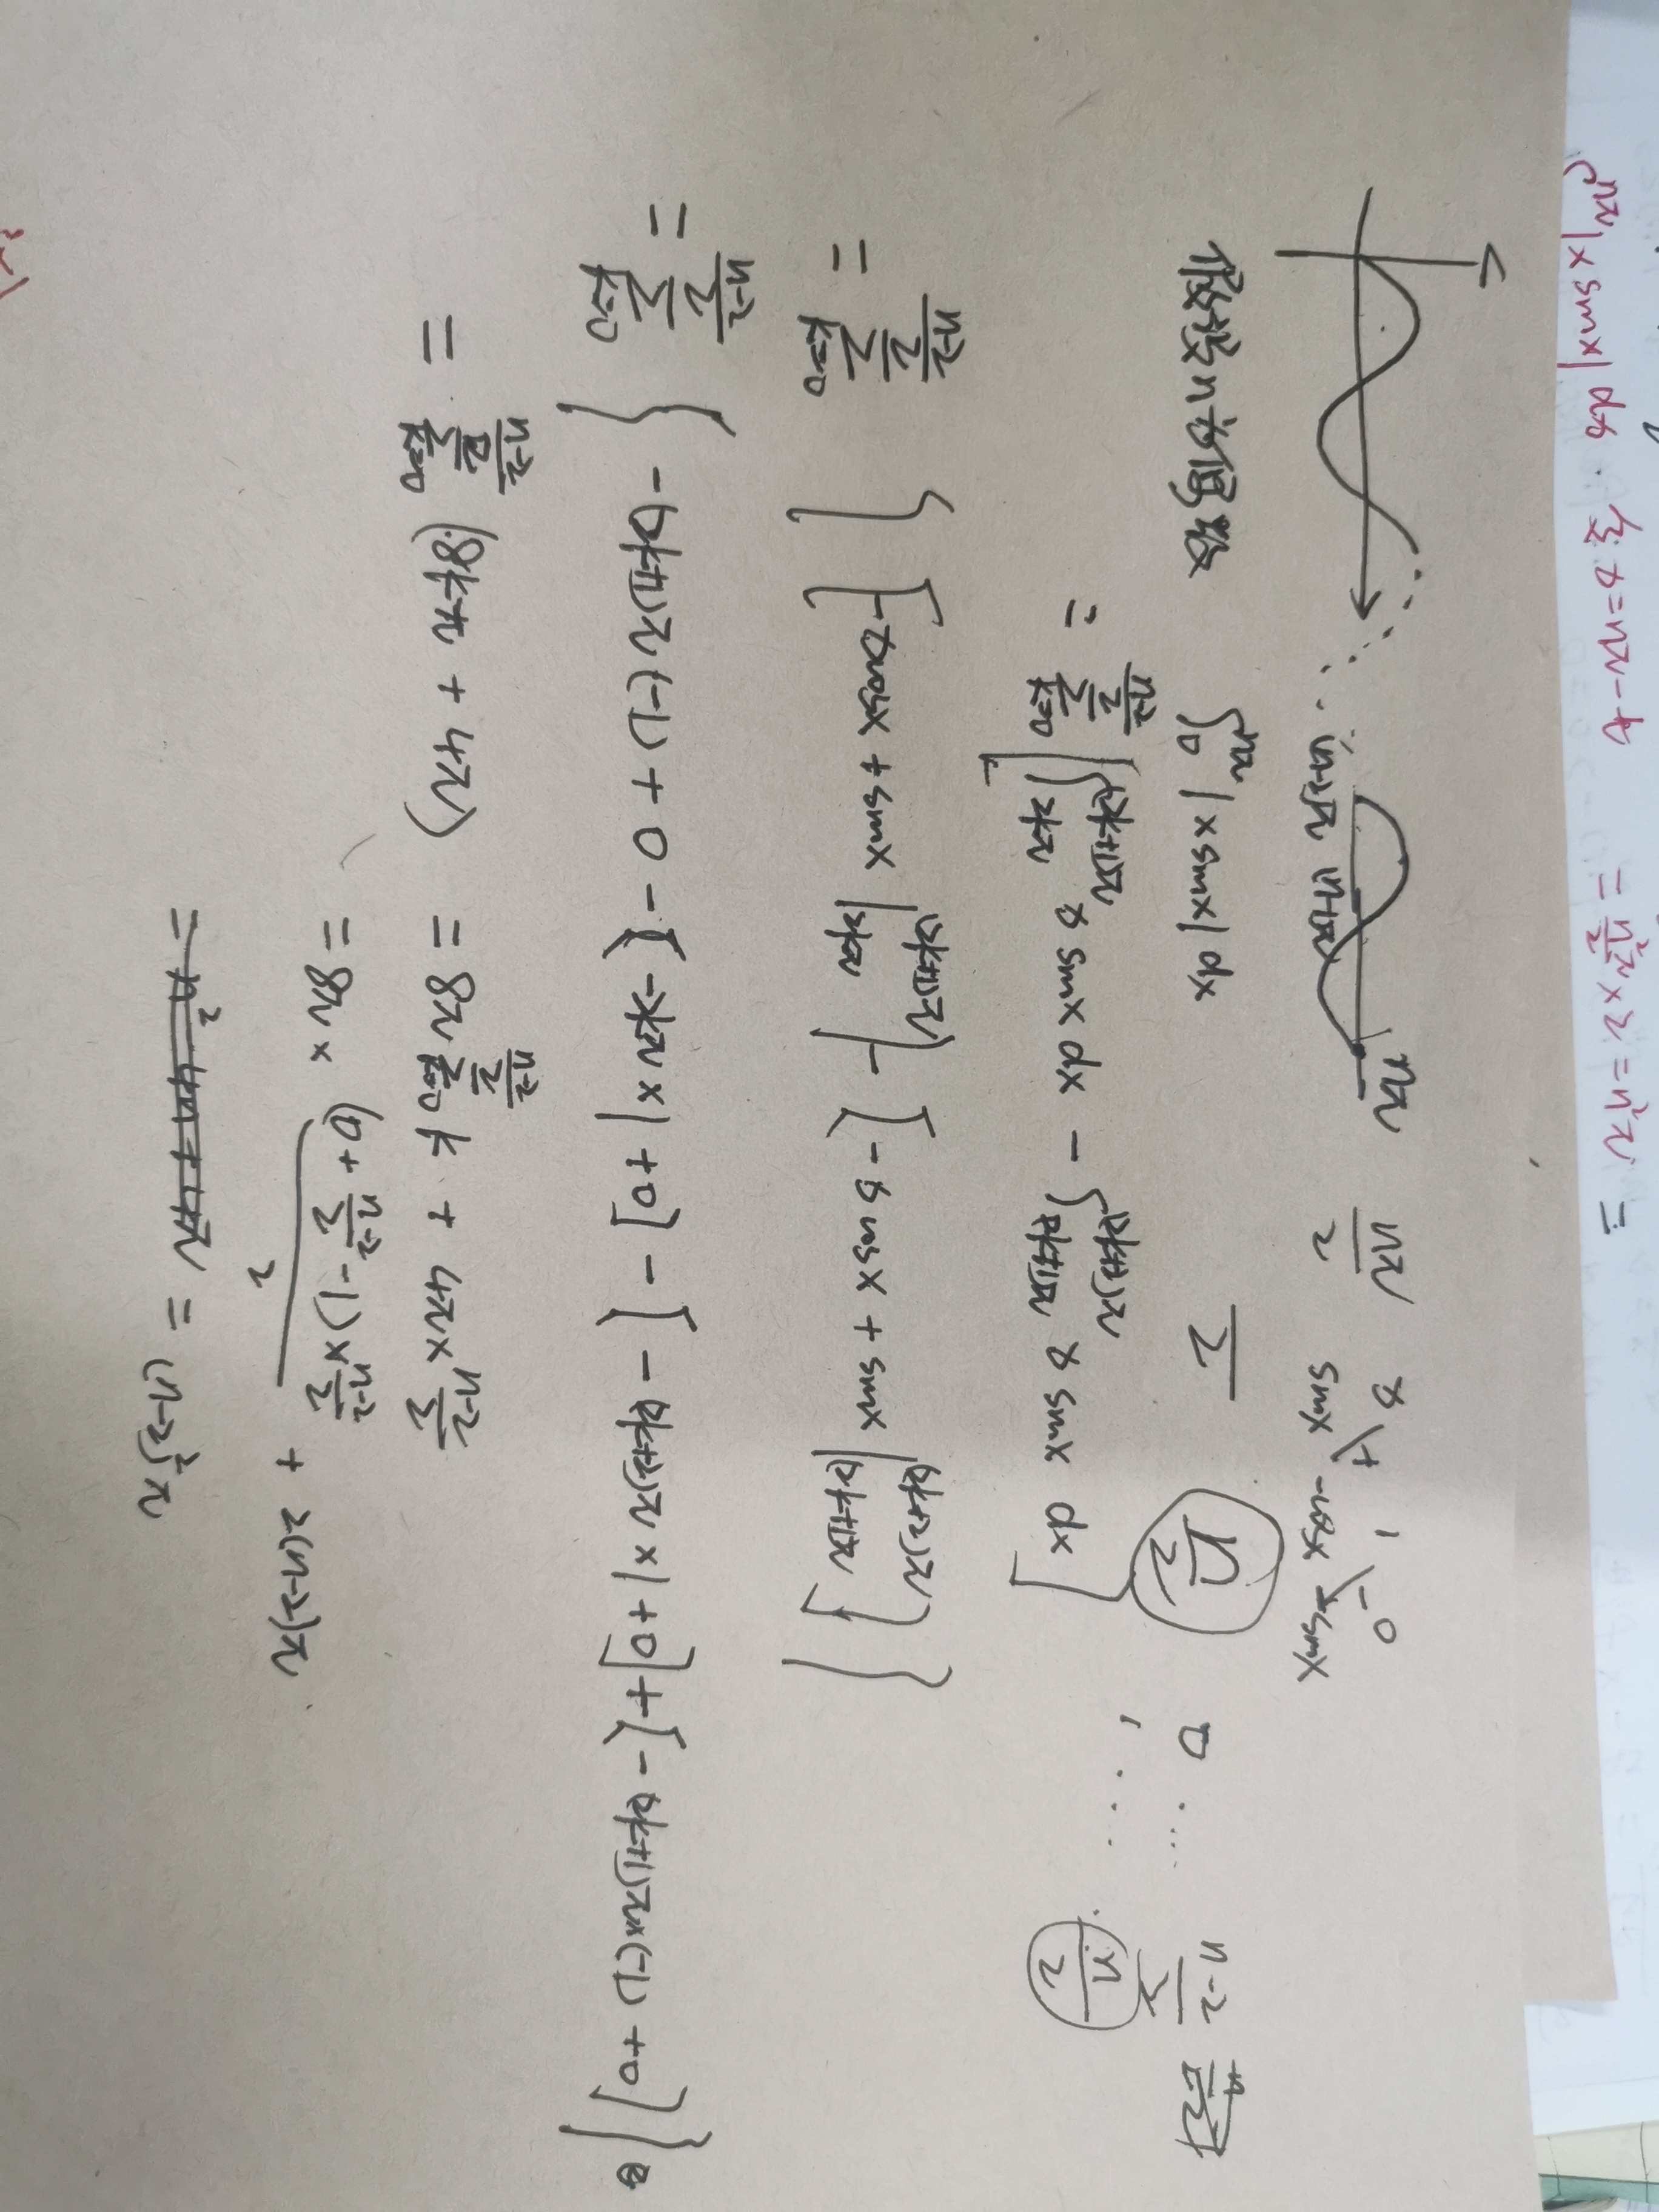 ∫₀^{nπ}|x sinx|dx. 令 x=nπ-t
= n²π = 2×π n²/2 =
nπ
nπ/2
x 1 0
+ -
sinx -cosx -sinx
假设n为偶数
∫₀^{nπ}|x sinx|dx
n/2
0 ...... (n-2)/2
n/2
= Σ_{k=0}^{(n-2)/2} [∫_{2kπ}^{(2k+1)π} x sinx dx - ∫_{(2k+1)π}^{(2k+2)π} x sinx dx]
= Σ_{k=0}^{(n-2)/2} { [-xcosx + sinx |_{2kπ}^{(2k+1)π}] - [-x cosx + sinx |_{(2k+1)π}^{(2k+2)π}] }
= Σ_{k=0}^{(n-2)/2} { -(2k+1)π(-1) + 0 - [-2kπ×1+0] - [-(2k+2)π×1+0] + [-(2k+1)π×(-1)+0] }
= Σ_{k=0}^{(n-2)/2} (8kπ + 4π) = 8π Σ_{k=0}^{(n-2)/2} k + 4π× (n-2)/2
= 8π × (0+(n-2)/2-1)×(n-2)/2 / 2 + 2(n-2)π
= (n-2)²π